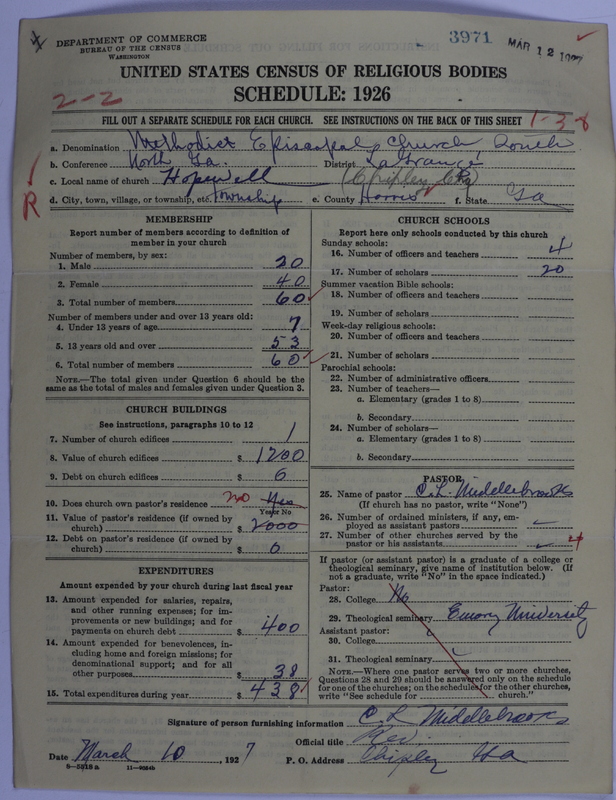 DEPARTMENT OF COMMERCE
BUREAU OF THE CENSUS
WASHINGTON
3971
MAR 12 1927
UNITED STATES CENSUS OF RELIGIOUS BODIES
SCHEDULE: 1926
2-2
FILL OUT A SEPARATE SCHEDULE FOR EACH CHURCH. SEE INSTRUCTIONS ON THE BACK OF THIS SHEET
1-38
a. Denomination Methodist Episcopal Church, South
b. Conference North Ga. District LaGrange
c. Local name of church Hopewell (Chipley
R
d. City, town, village, or township, etc. Township e. County Harris f. State Ga
MEMBERSHIP
Report number of members according to definition of
member in your church
Number of members, by sex:
1. Male 20
2. Female 40
3. Total number of members 60
Number of members under and over 13 years old:
4. Under 13 years of age 7
5. 13 years old and over 53
6. Total number of members 60
NOTE.—The total given under Question 6 should be the
same as the total of males and females given under Question 3.
CHURCH BUILDINGS
See instructions, paragraphs 10 to 12
7. Number of church edifices 1
8. Value of church edifices $ 1200
9. Debt on church edifices $ 0
10. Does church own pastor's residence no Yes
Yes or No
11. Value of pastor's residence (if owned by
church) $ 2000
12. Debt on pastor's residence (if owned by
church) $ 0
EXPENDITURES
Amount expended by your church during last fiscal year
13. Amount expended for salaries, repairs,
and other running expenses; for im-
provements or new buildings; and for
payments on church debt $ 400
14. Amount expended for benevolences, in-
cluding home and foreign missions; for
denominational support; and for all
other purposes $ 38
15. Total expenditures during year $ 438
CHURCH SCHOOLS
Report here only schools conducted by this church
Sunday schools:
16. Number of officers and teachers 4
17. Number of scholars 20
Summer vacation Bible schools:
18. Number of officers and teachers
19. Number of scholars
Week-day religious schools:
20. Number of officers and teachers
21. Number of scholars
Parochial schools:
22. Number of administrative officers
23. Number of teachers—
a. Elementary (grades 1 to 8)
b. Secondary
24. Number of scholars—
a. Elementary (grades 1 to 8)
b. Secondary
PASTOR
25. Name of pastor C. L. Middlebrooks
(If church has no pastor, write "None")
26. Number of ordained ministers, if any, em-
ployed as assistant pastors
27. Number of other churches served by the
pastor or his assistants 4
If pastor (or assistant pastor) is a graduate of a college or
theological seminary, give name of institution below. (If
not a graduate, write "No" in the space indicated.)
Pastor:
28. College No
29. Theological seminary Emory University
Assistant pastor:
30. College
31. Theological seminary
NOTE.—Where one pastor serves two or more churches,
Questions 28 and 29 should be answered only on the schedule
for one of the churches; on the schedules for the other churches,
write "See schedule for church."
Signature of person furnishing information C. L. Middlebrooks
Official title Rev.
Date March 10, 1927 P. O. Address Chipley Ga
8-5518a